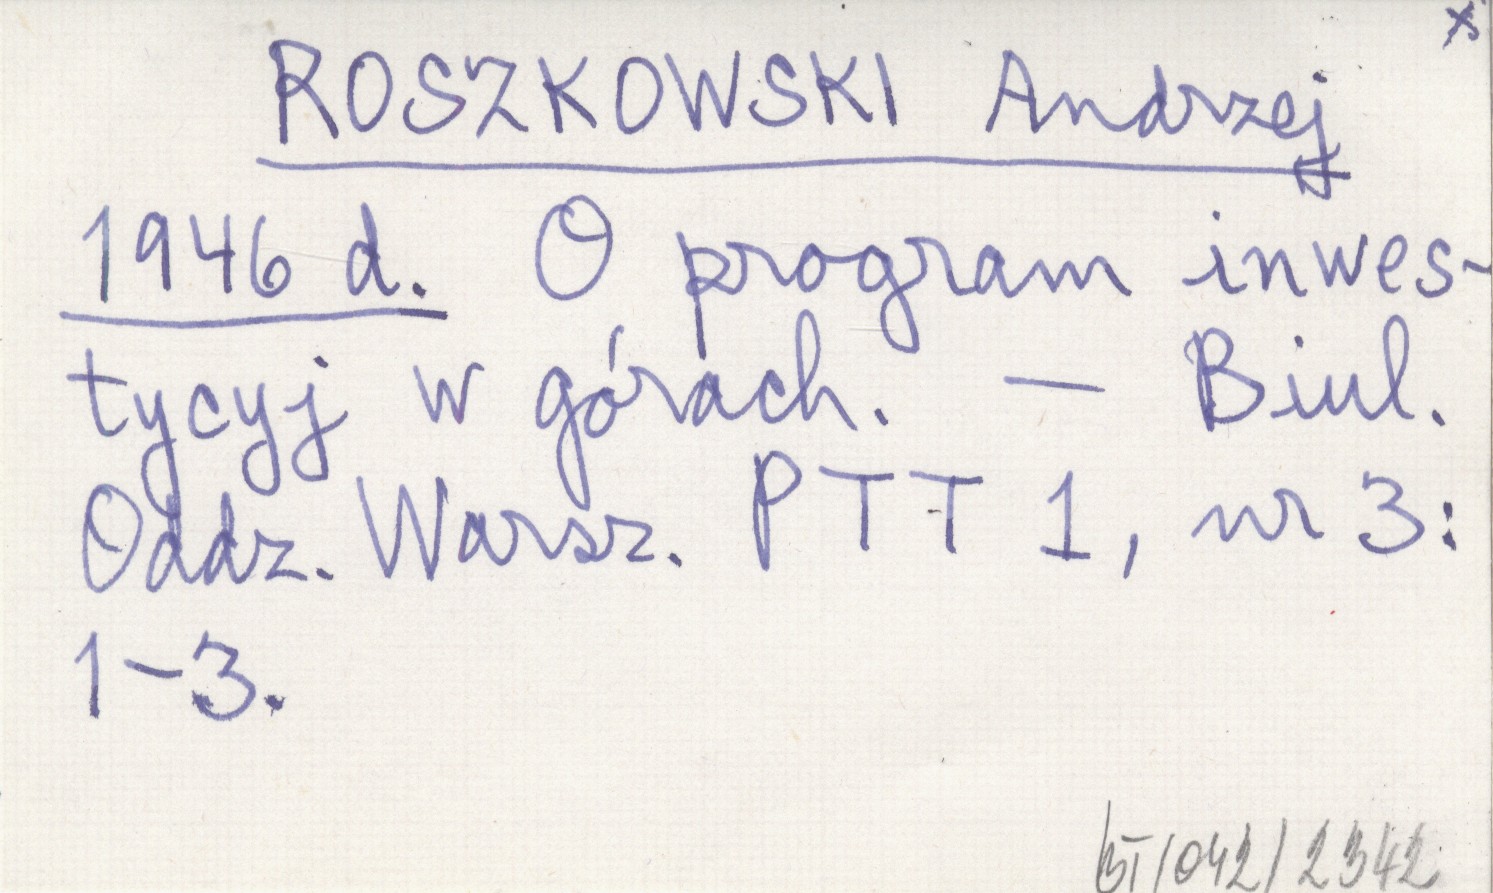 x
ROSZKOWSKI Andrzej
1946 d. O program inwes-
tycyj w górach. — Biul.
Oddz. Warsz. PTT 1, nr 3:
1-3.
BT/042/2342